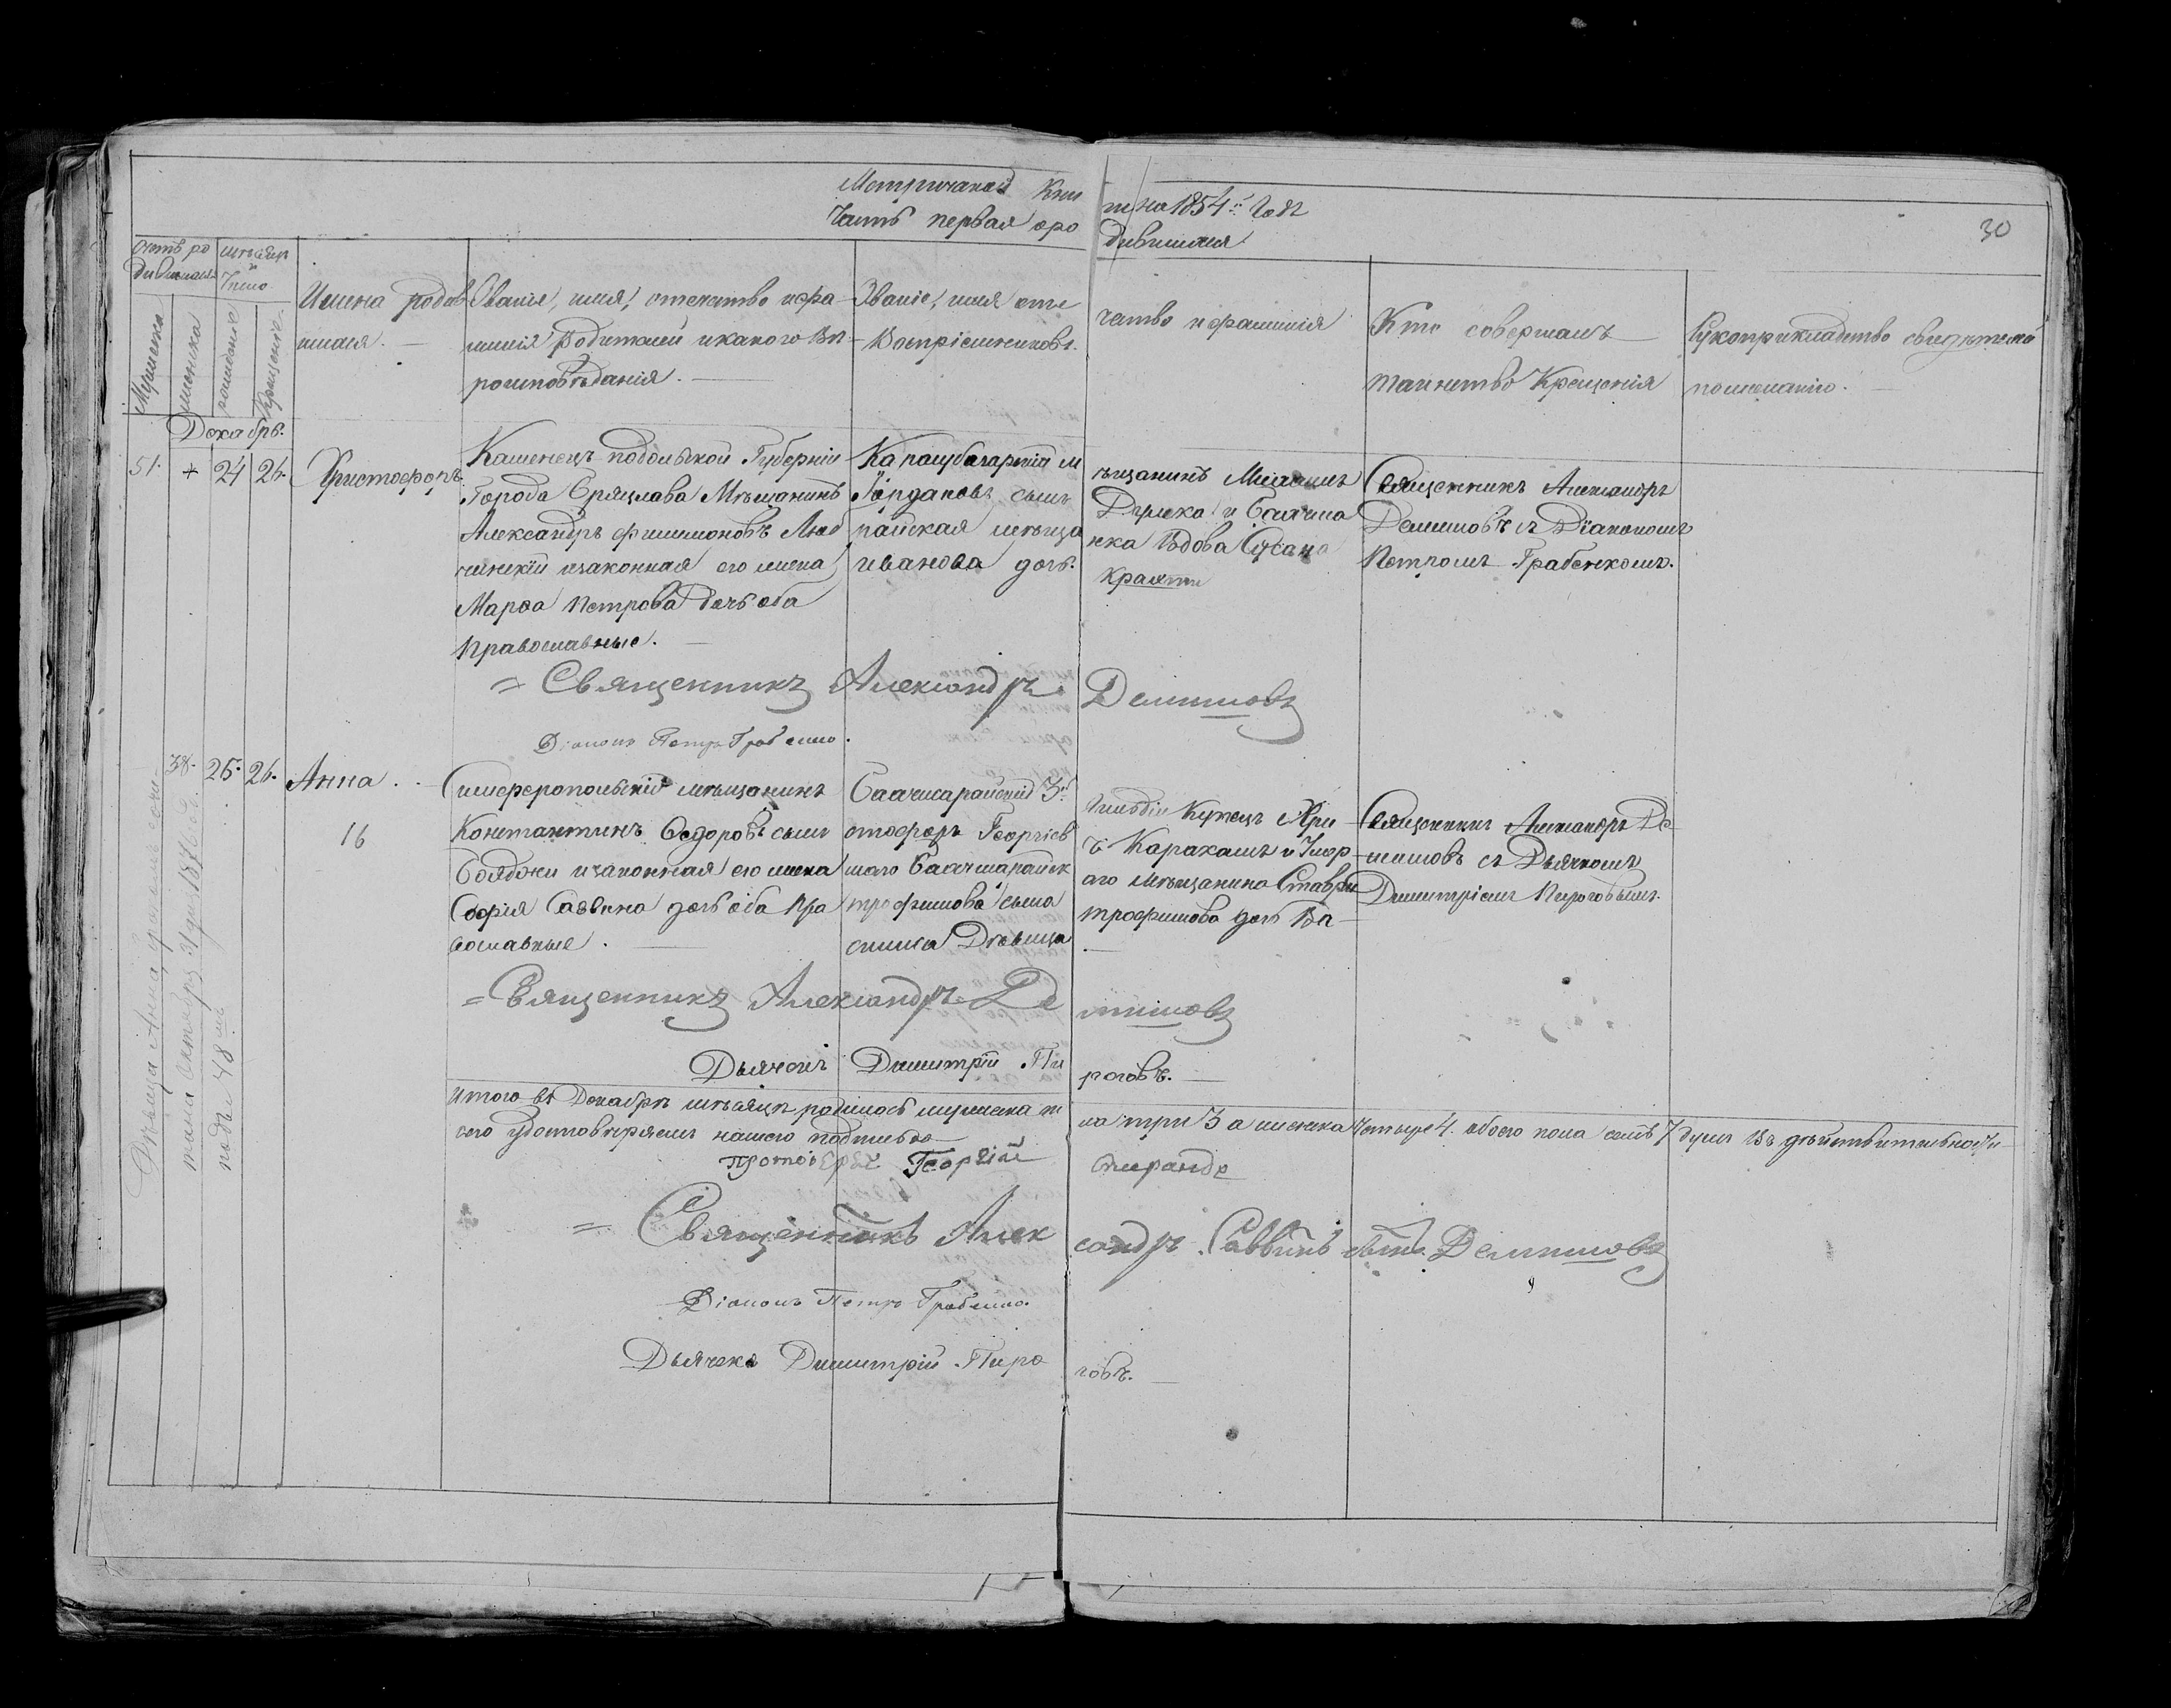 Метрической Кни ги на 1854й Годъ
Часть первая о ро дившихся
30
Счетъ ро дившихся
Мужеска
женска
рожденіе
Крещеніе
Имена родив шихся.
Званіе, имя, отечество и фа миліи Родителей и какого Вѣ роисповѣданія.
Званіе, имя оте чество и фамилія Воспріемниковъ.
Кто совершалъ таинство Крещенія
Рукоприкладство свидѣтелей по желанію.
Декабрь.
51. + 24 26. Христофоръ.
Каменецъ подольской Губерніи
Города Мѣщанинъ
Александръ Филимоновъ
и законная его жена
Марѳа Петрова дочь оба
Православные.
Карасубазарскій м ѣщанинъ Михаилъ
Іордановъ сынъ и Бахчиса
райская мѣща нка Вдова
Иванова дочь.
Священникъ Александръ
Демишовъ съ Діакономъ
Петромъ Грабенкомъ.
= Священникъ Александръ Демишовъ
Діаконъ Петръ Грабенко.
38. 25. 26. Анна.
16
Симферопольскій мѣщанинъ
Константинъ Ѳедоровъ сынъ
и законная его жена
Софія Саввина дочь оба Пра
вославные.
Бахчисарайскій 3й Гильдіи Купецъ Хри
стофоръ Георгіев ъ Каракашъ и Умер
шаго Бахчисарайск аго мѣщанина Ставри
трофимова сына трофимова дочь Ва
силиса Дѣвица
Священникъ Александръ Де
мишовъ съ Дьячкомъ
Димитріемъ Пироговымъ.
= Священникъ Александръ Де мишовъ
Дьячекъ Димитрій Пи роговъ.
Итого въ Декабрѣ мѣсяцѣ родилось мужеска по ла три 3 а женска Четыре 4. обоего пола семь 7 душъ Въ дѣйствительности
сего удостовѣряемъ нашею подписью
Протоіерей Георгій Спиранде
= Священникъ Алек сандръ Саввинъ Демишовъ
Діаконъ Петръ Грабенко.
Дьячекъ Димитрій Пиро говъ.
Дѣвица Анна